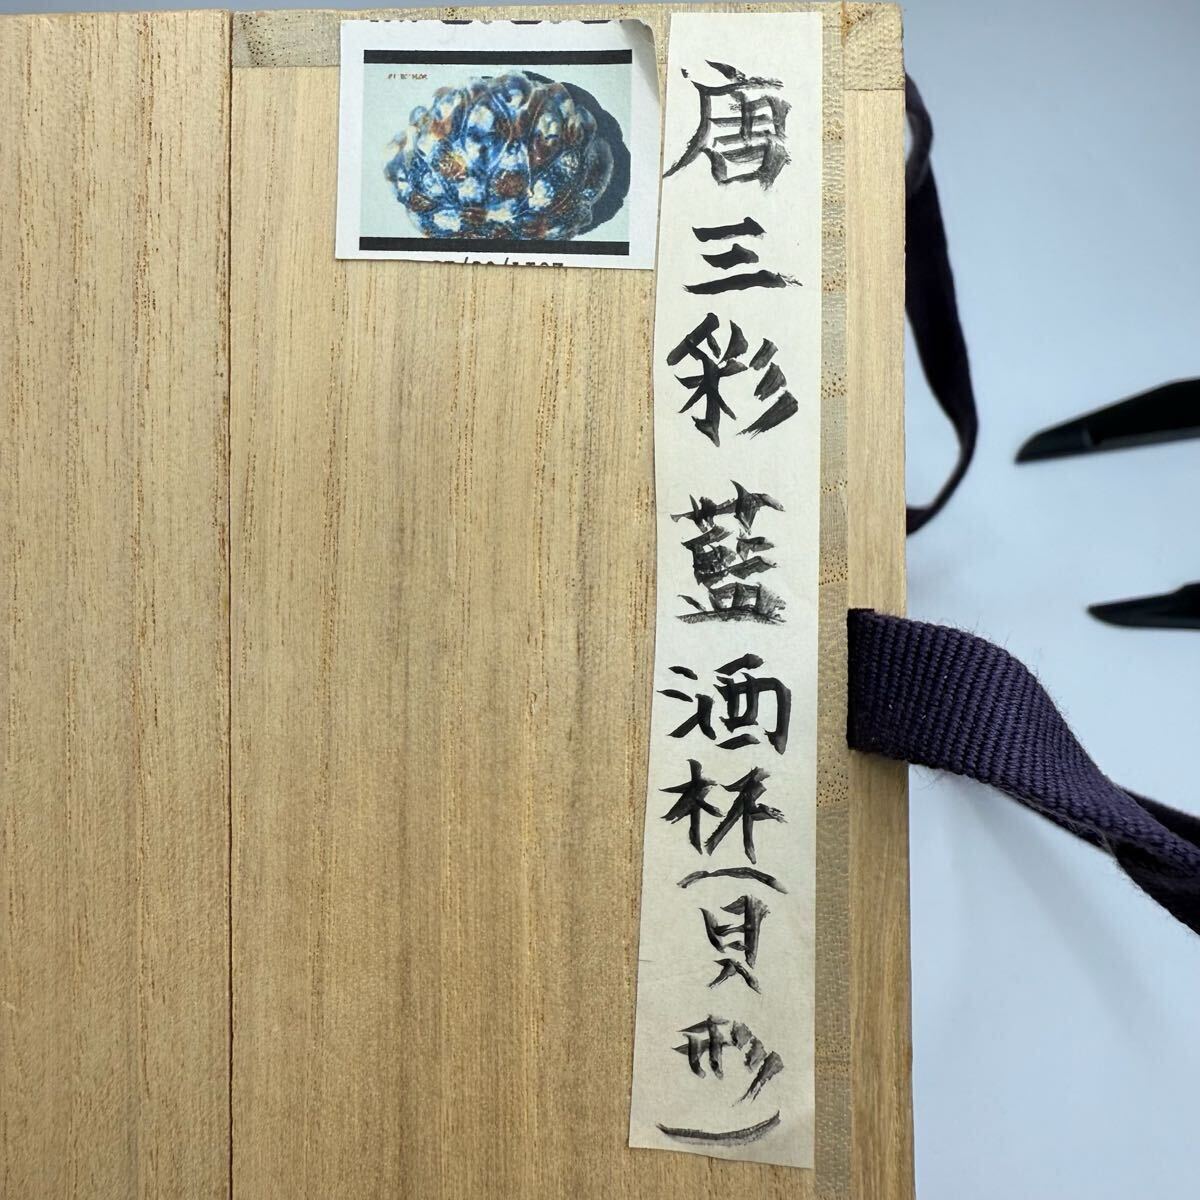 唐三彩 藍 酒杯(貝形)